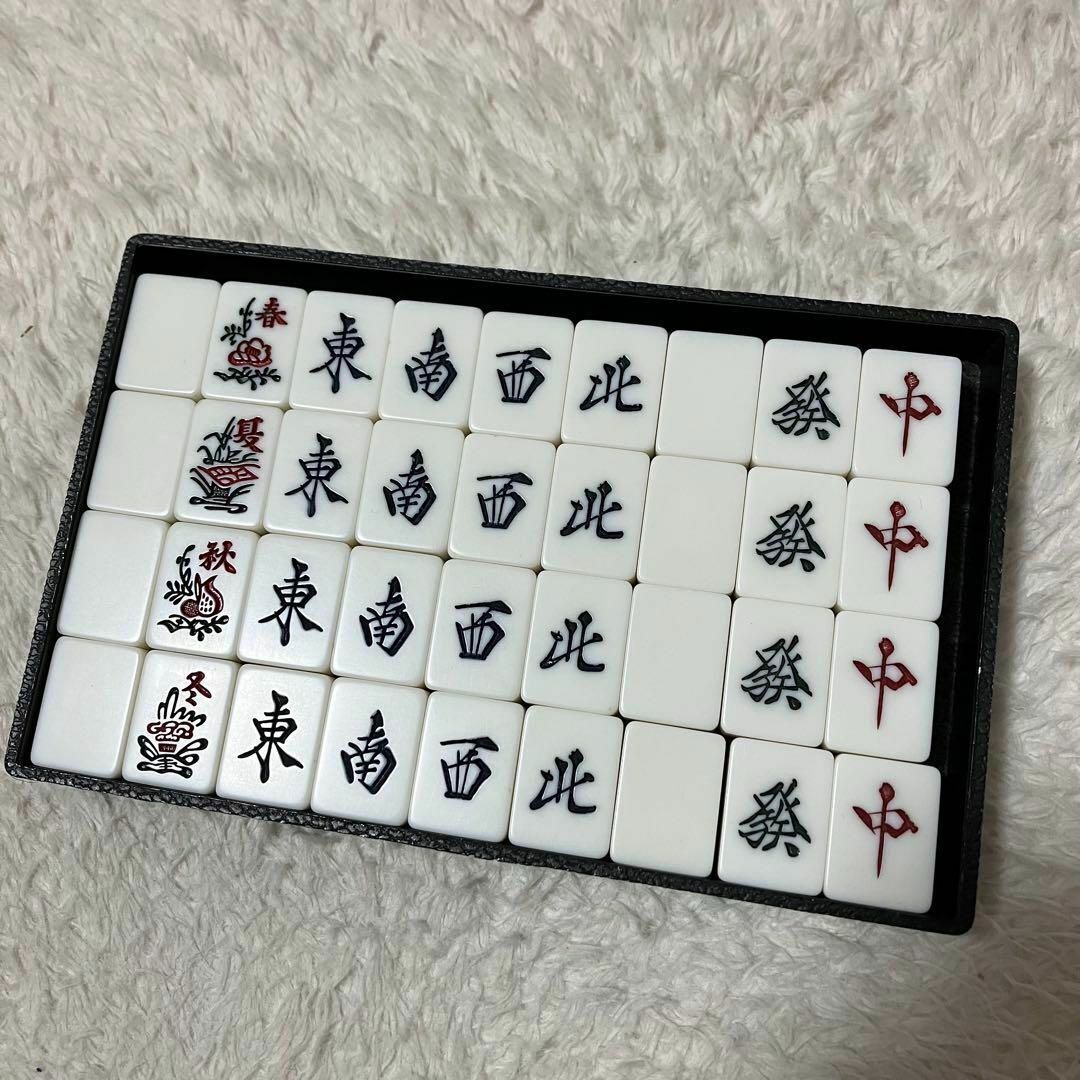 春 東 南 西 北 發 中
夏 東 南 西 北 發 中
秋 東 南 西 北 發 中
冬 東 南 西 北 發 中